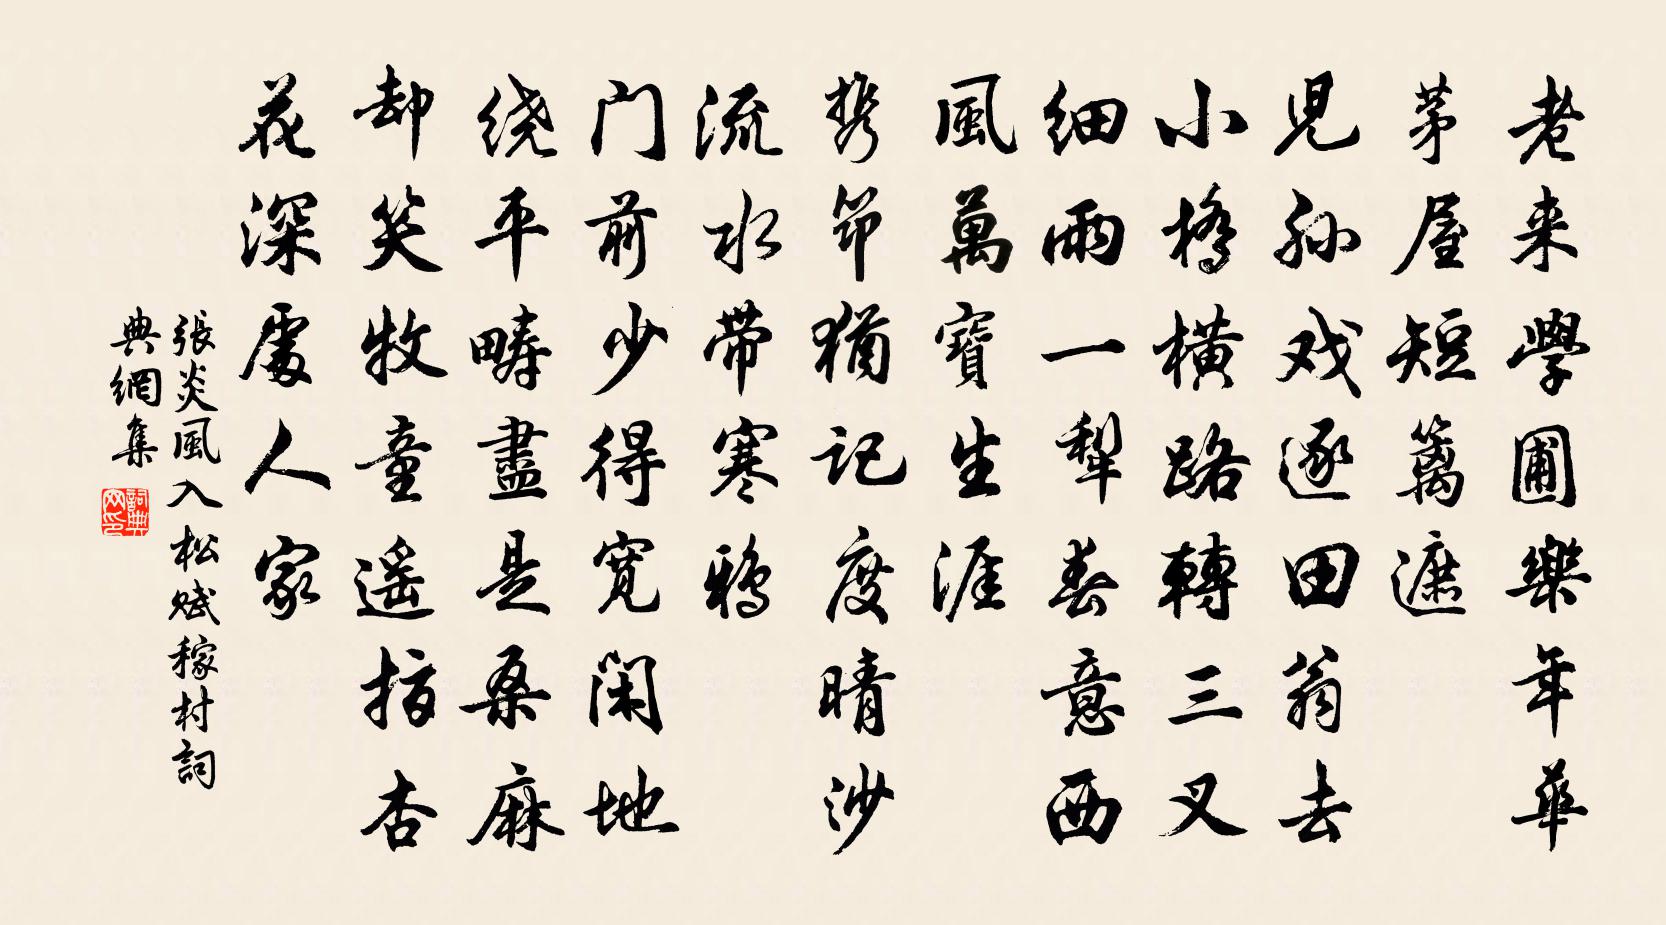 老来學圃樂年華
茅屋短篱遮
児孙戏逐田翁去
小橋橫路轉三叉
细雨一犁春意西
風萬寶生涯
携筇猶记度晴沙
流水带寒鸦
门前少得宽闲地
绕平疇盡是桑麻
却笑牧童遥指杏
花深處人家
張炎風入松赋稼村詞
典網集
詞典
网印